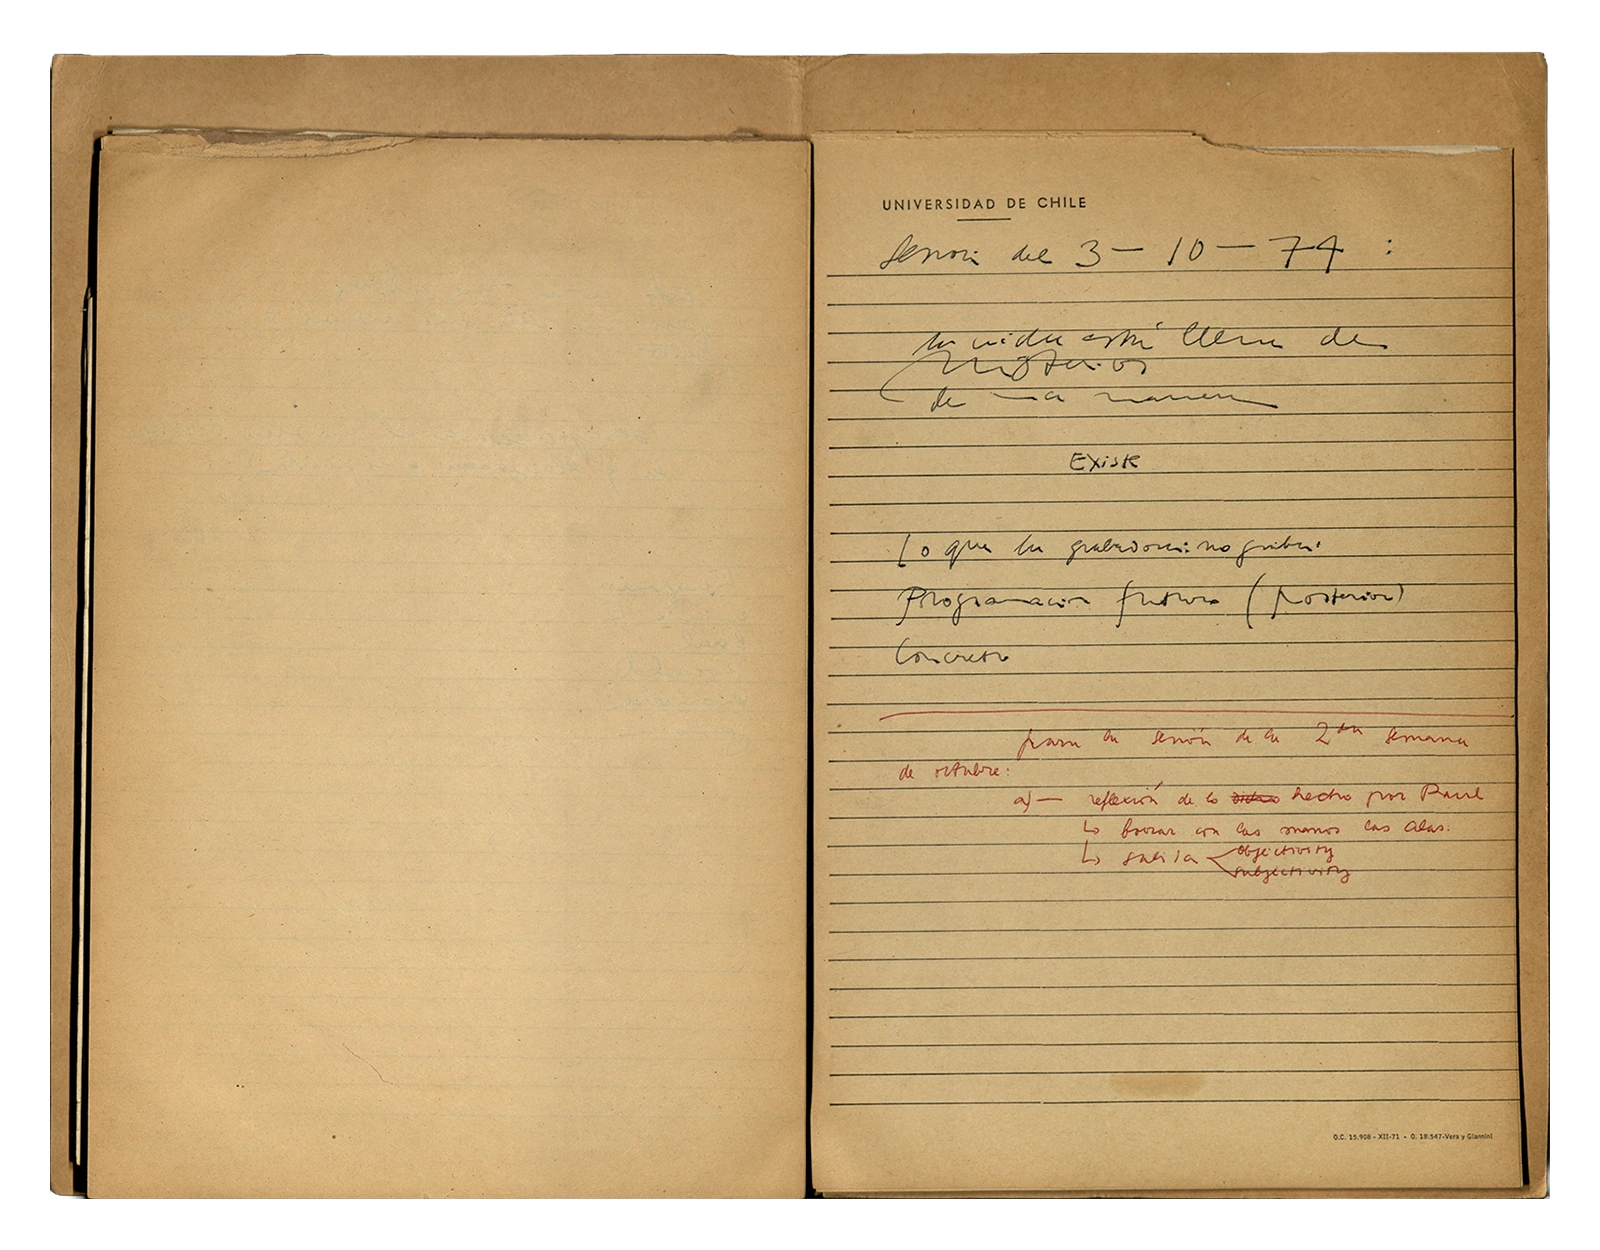 UNIVERSIDAD DE CHILE
Sesión del 3 — 10 — 74 :
la vida está llena de
misterios
de una manera
Existe
Lo que la grabadora: no graba.
Programación futura (posterior)
Concreto
para la sesión de la 2da semana
de octubre:
a) — reflexión de lo hecho por Raul
↳ con las manos las alas.
↳ salida < objectivity
subjectivity
O.C. 15.908 - XII-71 - O. 18.547-Vera y Giannini